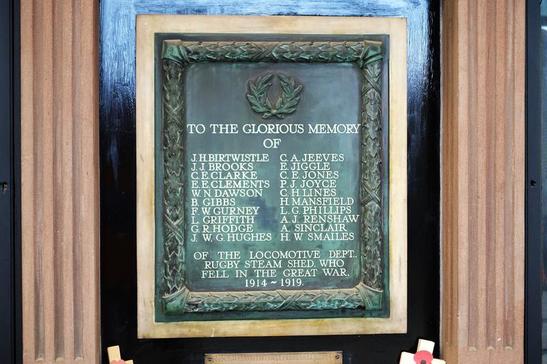 TO THE GLORIOUS MEMORY
OF
J.H.BIRTWISTLE
J.J BROOKS
C.E.CLARKE
E.E.CLEMENTS
W.N DAWSON
B. GIBBS
F.W GURNEY
L. GRIFFITH
G.R.HODGE
J. W. G HUGHES
C. A. JEEVES
E. JIGGLE
C. E. JONES
P. J. JOYCE
C. H LINES
H MANSFIELD
L. G PHILLIPS
A. J. RENSHAW
A. SINCLAIR
H. W SMAILES
OF THE LOCOMOTIVE DEPT..
RUGBY STEAM SHED, WHO
FELL IN THE GREAT WAR.
1914 ~ 1919.